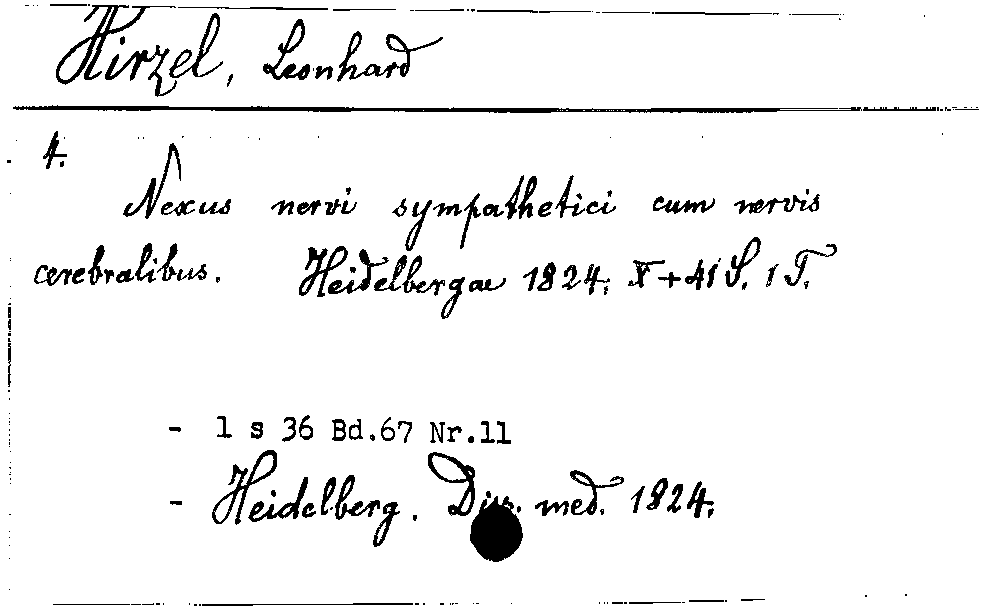 Hirzel, Leonhard
4.
Nexus nervi sympathetici cum nervis
cerebralibus. Heidelbergae 1824. X+41 S. 1 T.
- 1 s 36 Bd.67 Nr.11
- Heidelberg. Diss. med. 1824.